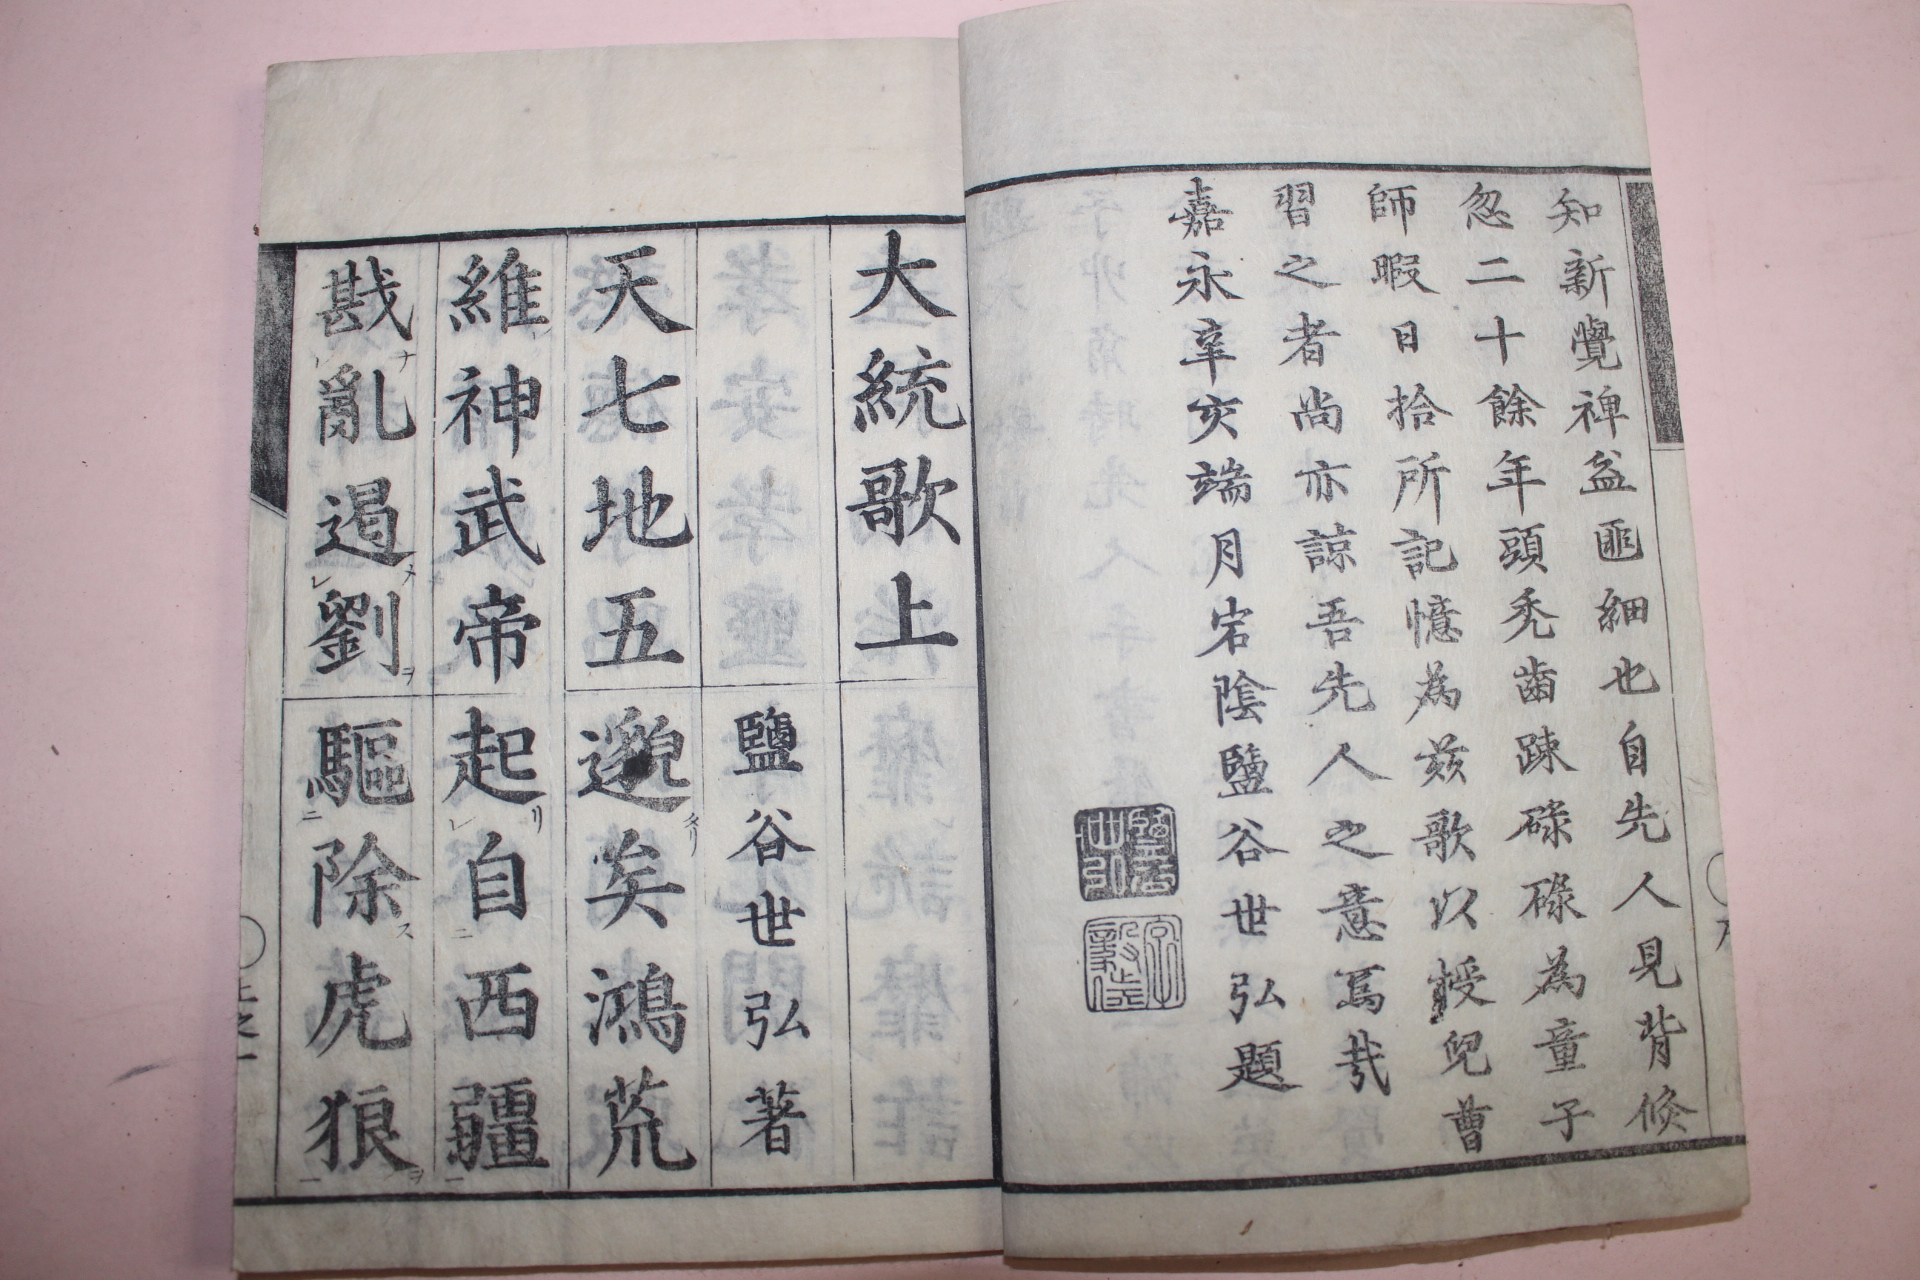 知新覺裨益匪細也自先人見背倐
忽二十餘年頭禿齒踈碌碌為童子
師暇日拾所記憶為兹歌以授兒曹
習之者尚亦諒吾先人之意焉哉
嘉永辛亥端月宕陰鹽谷世弘題
大統歌上
鹽谷世弘著
天七地五邈矣鴻荒
維神武帝起自西疆
戡亂遏劉驅除虎狼
上之一